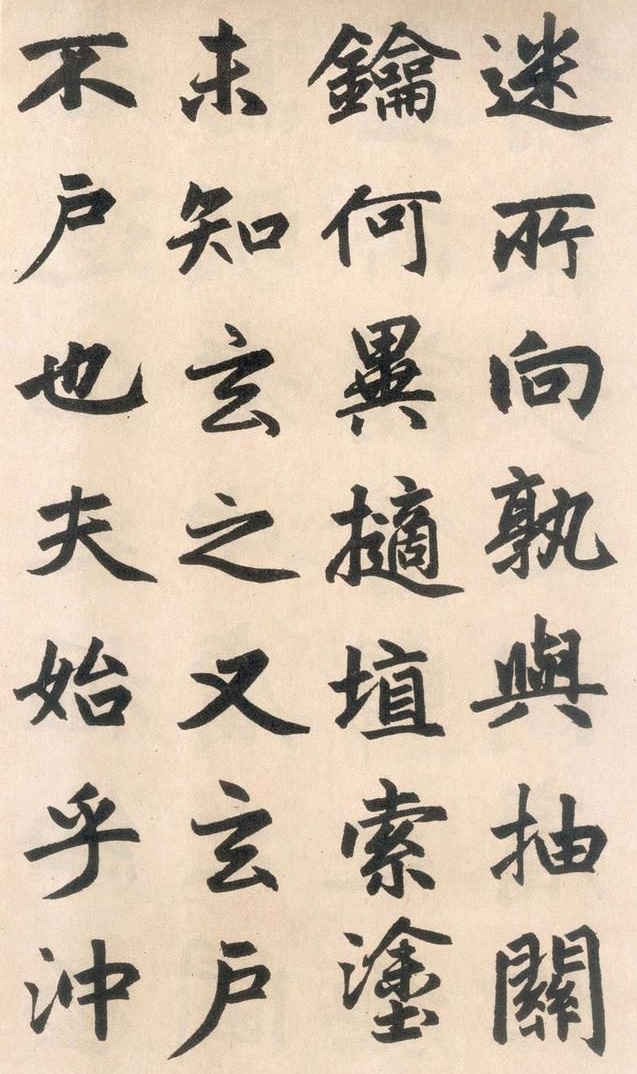 迷所向孰與抽關
鑰何異擿埴索塗
未知玄之又玄户
不户也夫始乎沖